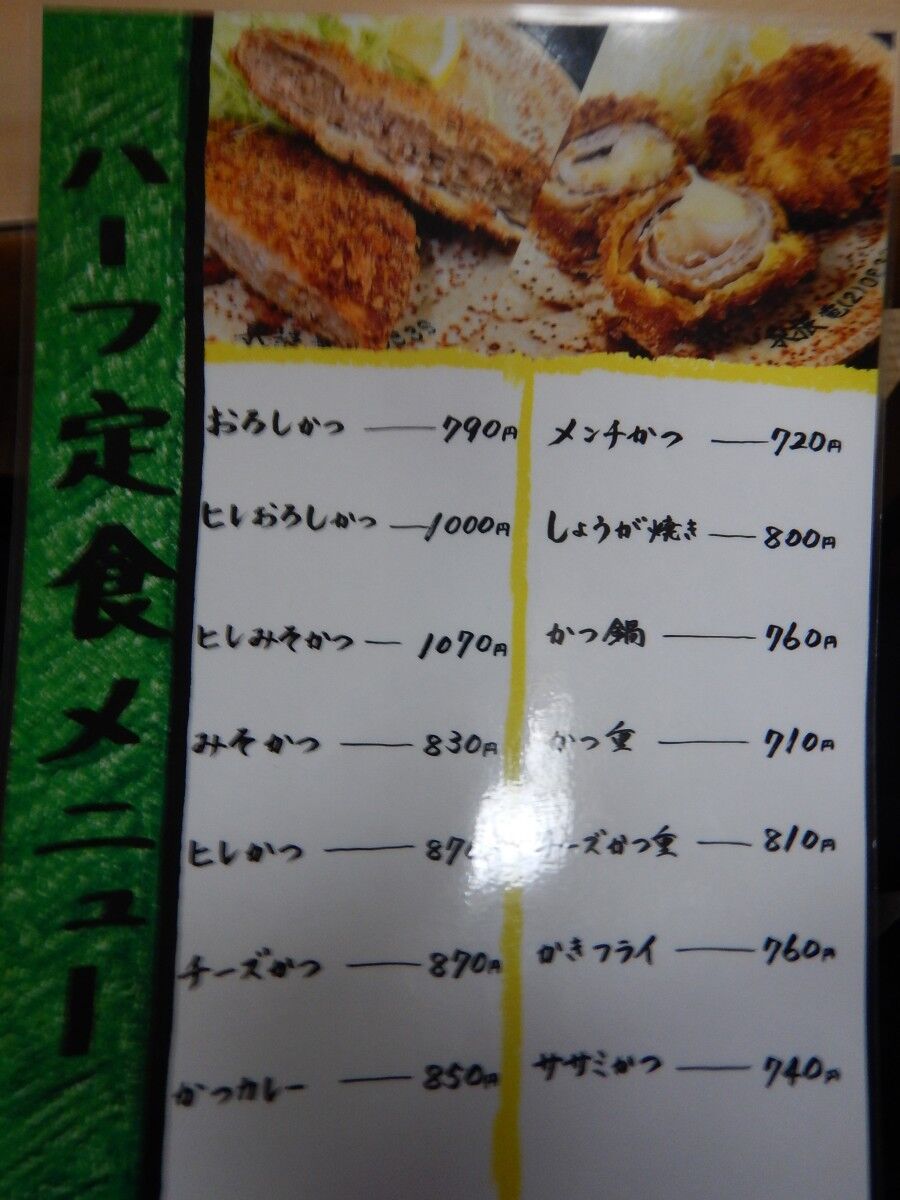 ハーフ定食メニュー
おろしかつ 790円
ヒレおろしかつ 1000円
ヒレみそかつ 1070円
みそかつ 830円
ヒレかつ
チーズかつ 870円
かつカレー 850円
メンチかつ 720円
しょうが焼き 800円
かつ鍋 760円
かつ重 710円
チーズかつ重 810円
かきフライ 760円
ササミかつ 740円